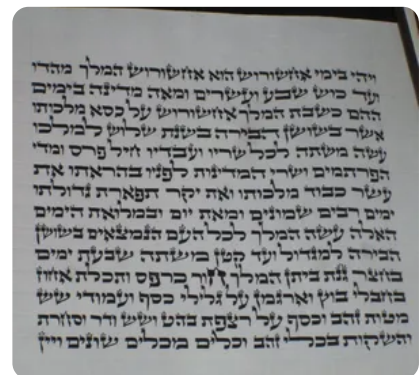 ויהי בימי אחשורוש הוא אחשורוש המלך מהדו
ועד כוש שבע ועשרים ומאה מדינה בימים
ההם כשבת המלך אחשורוש על כסא מלכותו
אשר בשושן הבירה בשנת שלוש למלכו
עשה משתה לכל שריו ועבדיו חיל פרס ומדי
הפרתמים ושרי המדינות לפניו בהראתו את
עשר כבוד מלכותו ואת יקר תפארת גדולתו
ימים רבים שמונים ומאת יום ובמלואת הימים
האלה עשה המלך לכל העם הנמצאים בשושן
הבירה למגדול ועד קטן משתה שבעת ימים
בחצר גנת ביתן המלך חור כרפס ותכלת אחוז
בחבלי בוץ וארגמן על גלילי כסף ועמודי שש
מטות זהב וכסף על רצפת בהט ושש ודר וסחרת
והשקות בכלי זהב וכלים מכלים שונים ויין